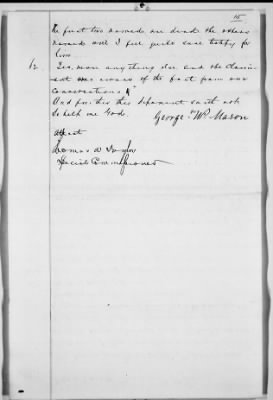 15
The first two named are dead the others
named will I feel quite sure testify for
him.
12. No, more anything else and the claim-
ant was aware of the fact from our
conversations
And further this deponent saith not
So help me God.
George W. Mason
Attest
Thomas W Taylor
Special Commissioner